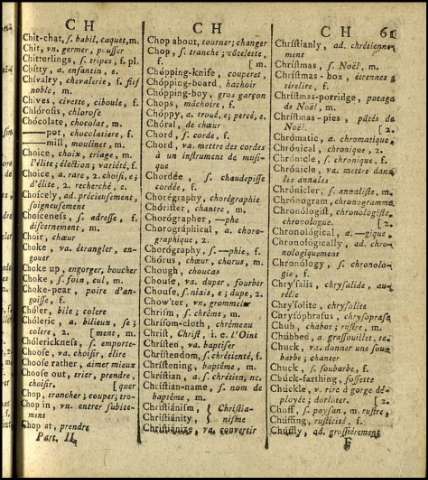 C H
Chit-chat, s. babil, caquet, m.
Chit, vn. germer, pousser
Chitterlings, s. tripes, f. pl.
Chitty, a. enfantin, e.
Chivalry, chevalerie, f. fief
noble, m.
Chives, civette, ciboule, f.
Chlorosis, chlorose
Chócolate, chocolat, m.
——pot, chocolatiere, f.
——mill, moulinet, m.
Choice, choix, triage, m.
l'élite; élection; variété, f.
Choice, a. rare, 2. choisi, e;
d'élite, 2. recherché, e.
Choicely, ad. précieusement,
soigneusement
Choiceness, s. adresse, f.
discernement, m.
Choir, chœur
Choke, va. étrangler, en-
gouer
Choke up, engorger, boucher
Choke, s. foin, cul, m.
Choke-pear, poire d'an-
goisse, f.
Chóler, bile; colere
Chóleric, a. bilieux, se;
colere, 2. [ment, m.
Chólerickness, s. emporte-
Choose, va. choisir, élire
Choose rather, aimer mieux
Choose out, trier, prendre,
choisir, [quer
Chop, trancher; couper; tro-
Chop in, vn. entrer subite-
ment
Chop at, prendre
Part. II.
C H
Chop about, tourner; changer
Chop, s. tranche; côtelette,
f. [m.
Chópping-knife, couperet,
Chópping-board, hachoir
Chópping-boy, gros garçon
Chops, mâchoire, f.
Chóppy, a. troué, e; percé, e.
Chóral, de chœur
Chord, s. corde, f.
Chord, va. mettre des cordes
à un instrument de musi-
que
Chordée, s. chaudepisse
cordée, f.
Chorégraphy, chorégraphie
Chórister, chantre, m.
Chorógrapher, —phe
Chorográphical, a. choro-
graphique, 2.
Chorógraphy, s. —phie, f.
Chórus, chœur, chorus, m.
Chough, choucas
Chouse, va. duper, fourber
Chouse, s. niais, e; dupe, 2.
Chow'ter, vn. grommeler
Chrism, s. chrême, m.
Chrisom-cloth, chrémeau
Christ, Christ, i. e. l'Oint
Christen, va. baptiser
Christendom, s. chrétienté, f.
Christening, baptême, m.
Christian, a. s. chrétien, ne.
Christian-name, s. nom de
baptême, m.
Christiánism, { Christia-
Christiánity, { nisme
Christiánize, va. convertir
C H 61
Christianly, ad. chrétienne-
ment
Christmas, s. Noël, m.
Christmas-box, étrennes;
tirelire, f.
Christmas-porridge, potage
de Noël, m.
Christmas-pies, pâtés de
Noël, m. [2.
Chromátic, a. chromatique,
Chrónical, chronique, 2.
Chrónicle, s. chronique, f.
Chrónicle, va. mettre dans
les annales
Chrónicler, s. annaliste, m.
Chrónogram, chronogramme
Chronólogist, chronologiste,
chronologue, [2.
Chronológical, a. —gique,
Chronologically, ad. chro-
nologiquement
Chronólogy, s. chronolo-
gie, f.
Chrysalis, chrysalide, au-
rélie
Chrysolite, chrysolite
Chrysóphrasus, chrysoprase
Chub, chabot; rustre, m.
Chúbbed, a. grassouillet, te.
Chuck, va. donner une sous-
barbe; chanter
Chuck, s. soubarbe, f.
Chúck-farthing, fossette
Chúckle, v. rire à gorge dé-
ployée; dorloter.
Chuff, s. paysan, m. rustre,
Chúffiness, rusticité, f.
Chúffily, ad. grossièrement
F